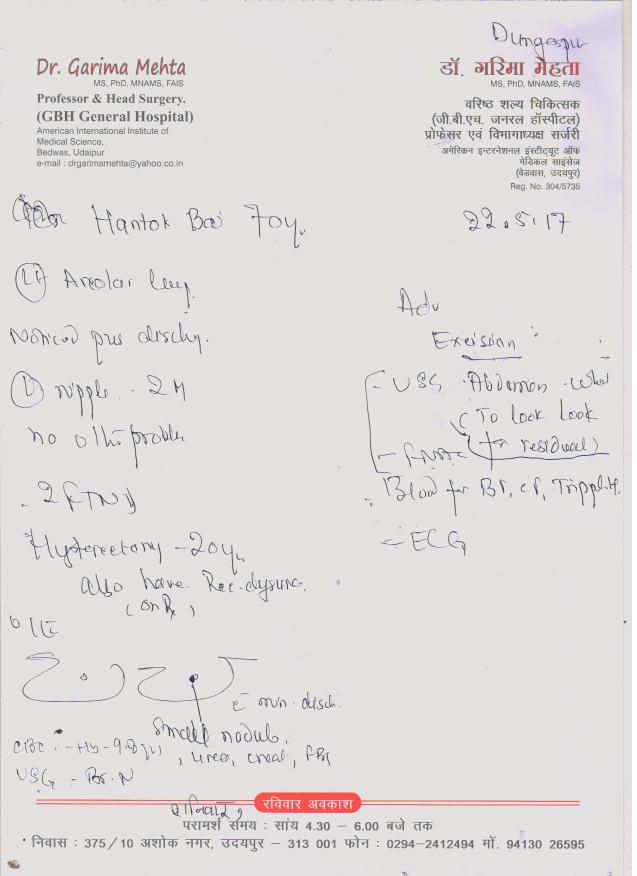 Dr. Garima Mehta
MS, PhD, MNAMS, FAIS
Professor & Head Surgery.
(GBH General Hospital)
American International Institute of
Medical Science,
Bedwas, Udaipur
e-mail : drgarimamehta@yahoo.co.in
डॉ. गरिमा मेहता
MS, PhD, MNAMS, FAIS
वरिष्ठ शल्य चिकित्सक
(जी.बी.एच. जनरल हॉस्पीटल)
प्रोफेसर एवं विभागाध्यक्ष सर्जरी
अमेरिकन इन्टरनेशनल इंस्टीट्यूट ऑफ
मेडिकल साइंसेज
(बेडवास, उदयपुर)
Reg. No. 304/5735
Bai 70y.
22.5.17
Areolar
Noticed pus
nipple - 2M
no
Hysterectomy - 20y
also have Rec.
(on Rx)
O/E
disch.
small nodule.
CBC : - Hb - 9.8
, urea, creat,
USG - Br. N
Adv
Excision
- USG Abdomen - whol
(To look look
for residual)
- FNAC
Blood for BT, CT,
- ECG
रविवार अवकाश
शनिवार,
परामर्श समय : सांय 4.30 – 6.00 बजे तक
निवास : 375/10 अशोक नगर, उदयपुर – 313 001 फोन : 0294–2412494 मों. 94130 26595